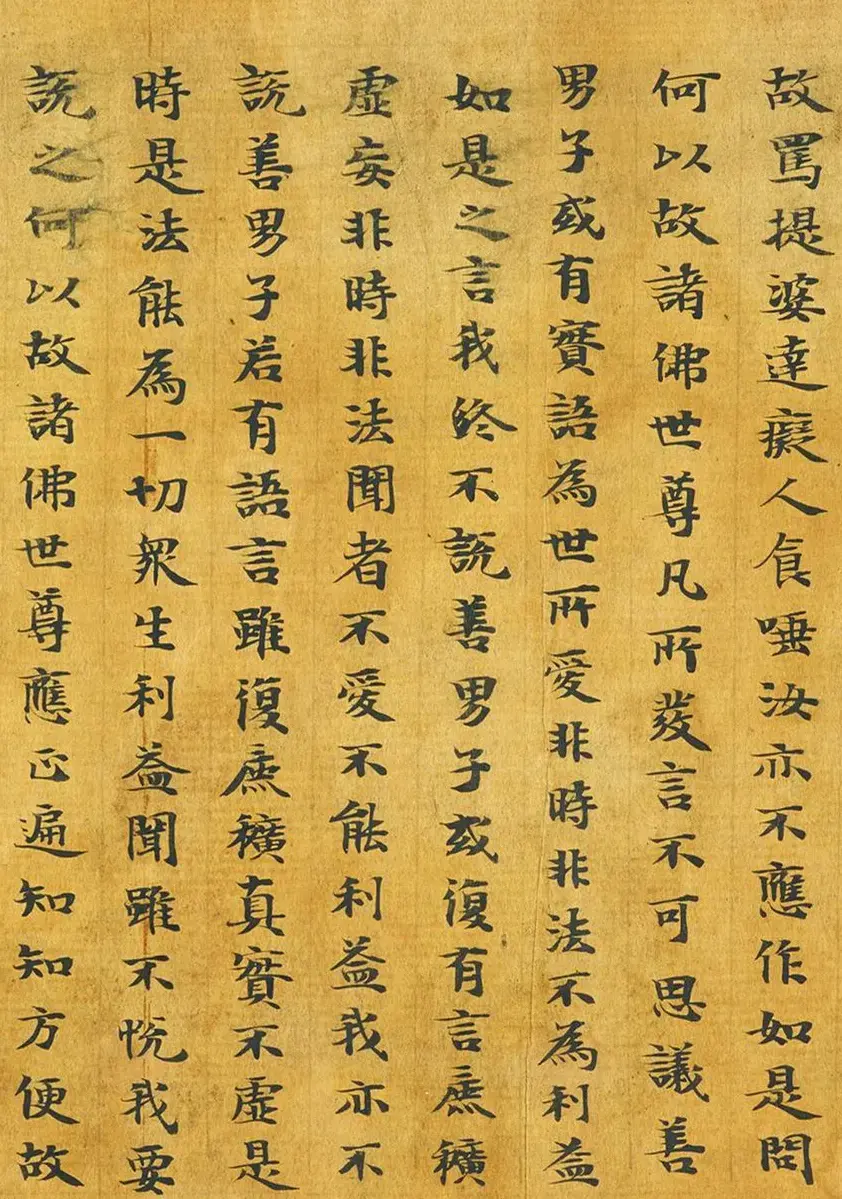 故罵提婆達癡人食唾汝亦不應作如是問
何以故諸佛世尊凡所發言不可思議善
男子或有實語為世所愛非時非法不為利益
如是之言我終不說善男子或復有言麁穬
虛妄非時非法聞者不愛不能利益我亦不
說善男子若有語言雖復麁穬真實不虛是
時是法能為一切眾生利益聞雖不悅我要
說之何以故諸佛世尊應正遍知知方便故